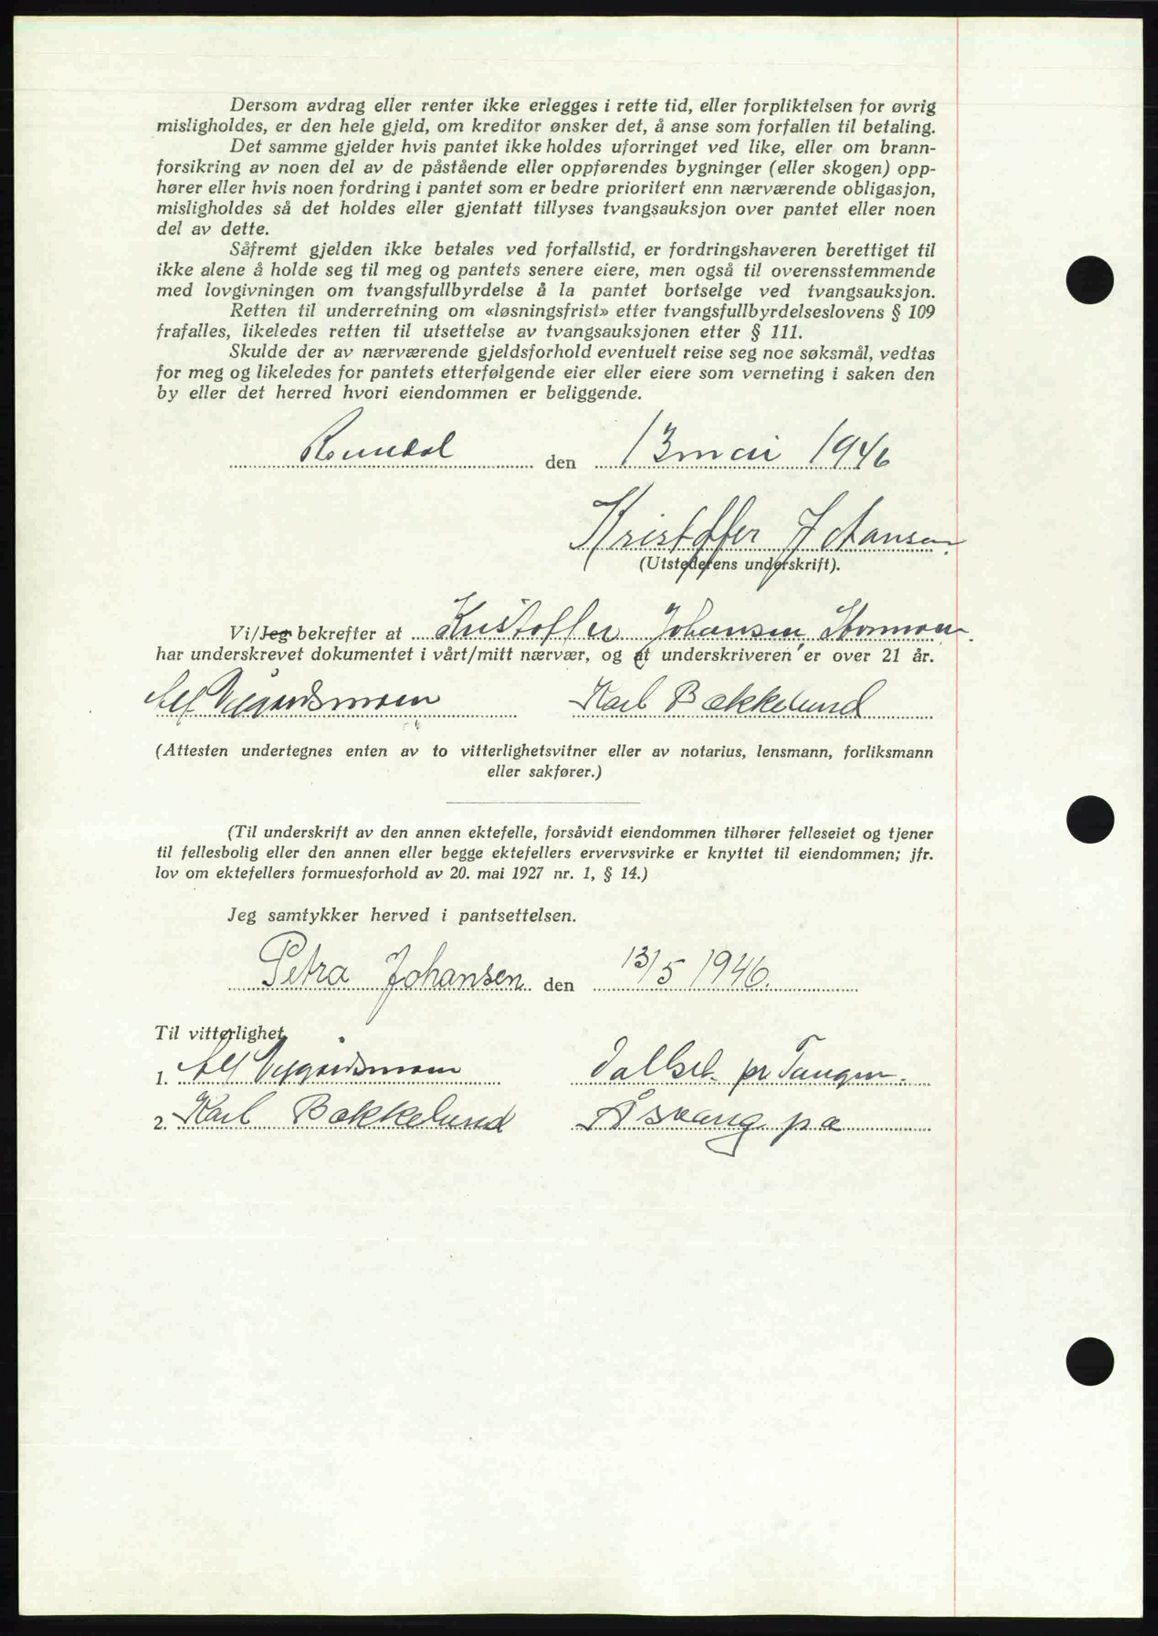 Dersom avdrag eller renter ikke erlegges i rette tid, eller forpliktelsen for øvrig
misligholdes, er den hele gjeld, om kreditor ønsker det, å anse som forfallen til betaling.
Det samme gjelder hvis pantet ikke holdes uforringet ved like, eller om brann-
forsikring av noen del av de påstående eller oppførendes bygninger (eller skogen) opp-
hører eller hvis noen fordring i pantet som er bedre prioritert enn nærværende obligasjon,
misligholdes så det holdes eller gjentatt tillyses tvangsauksjon over pantet eller noen
del av dette.
Såfremt gjelden ikke betales ved forfallstid, er fordringshaveren berettiget til
ikke alene å holde seg til meg og pantets senere eiere, men også til overensstemmende
med lovgivningen om tvangsfullbyrdelse å la pantet bortselge ved tvangsauksjon.
Retten til underretning om «løsningsfrist» etter tvangsfullbyrdelseslovens § 109
frafalles, likeledes retten til utsettelse av tvangsauksjonen etter § 111.
Skulde der av nærværende gjeldsforhold eventuelt reise seg noe søksmål, vedtas
for meg og likeledes for pantets etterfølgende eier eller eiere som verneting i saken den
by eller det herred hvori eiendommen er beliggende.
Romedal den 13 mai 1946
Kristoffer Johansen
(Utstederens underskrift).
Vi/Jeg bekrefter at Kristoffer Johansen
har underskrevet dokumentet i vårt/mitt nærvær, og at underskriveren er over 21 år.
Alf Karl Bækkelund
(Attesten undertegnes enten av to vitterlighetsvitner eller av notarius, lensmann, forliksmann
eller sakfører.)
(Til underskrift av den annen ektefelle, forsåvidt eiendommen tilhører felleseiet og tjener
til fellesbolig eller den annen eller begge ektefellers ervervsvirke er knyttet til eiendommen; jfr.
lov om ektefellers formuesforhold av 20. mai 1927 nr. 1, § 14.)
Jeg samtykker herved i pantsettelsen.
Petra Johansen den 13/5 1946.
Til vitterlighet
1. Alf pr Tangen.
2. Karl Bækkelund Åsvang pæ